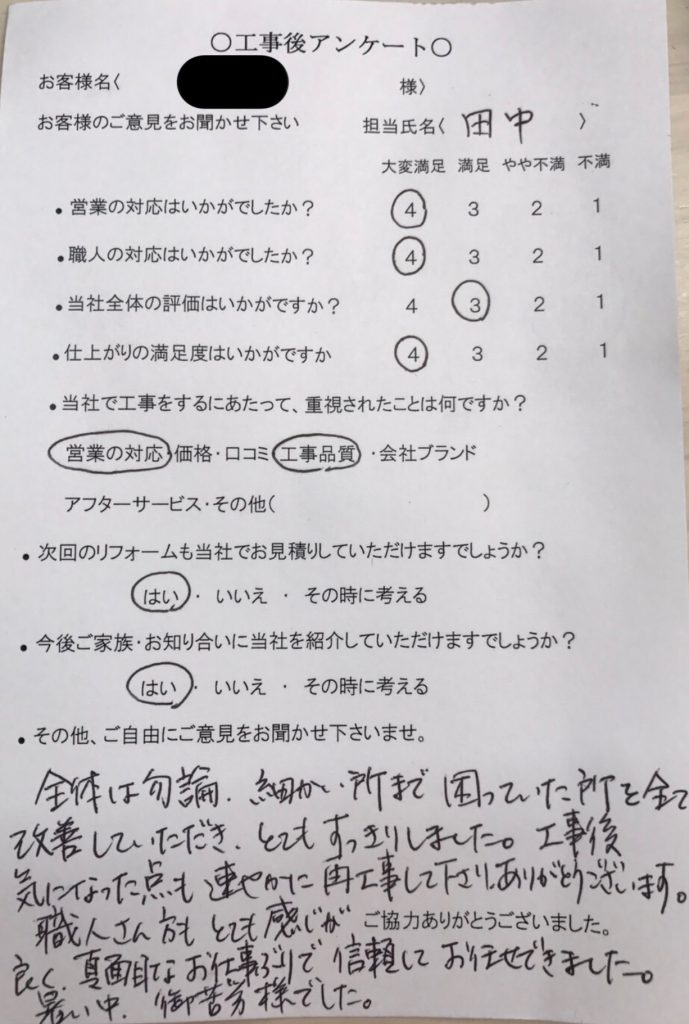 〇工事後アンケート〇
お客様名〈 様〉
お客様のご意見をお聞かせ下さい 担当氏名〈 田中 〉
大変満足 満足 やや不満 不満
・営業の対応はいかがでしたか？ 4 3 2 1
・職人の対応はいかがでしたか？ 4 3 2 1
・当社全体の評価はいかがですか？ 4 3 2 1
・仕上がりの満足度はいかがですか 4 3 2 1
・当社で工事をするにあたって、重視されたことは何ですか？
営業の対応・価格・口コミ・工事品質・会社ブランド
アフターサービス・その他( )
・次回のリフォームも当社でお見積りしていただけますでしょうか？
はい・ いいえ ・ その時に考える
・今後ご家族・お知り合いに当社を紹介していただけますでしょうか？
はい・ いいえ ・ その時に考える
・その他、ご自由にご意見をお聞かせ下さいませ。
全体は勿論、細かい所まで困っていた所を全て
改善していただき、とてもすっきりしました。工事後
気になった点も速やかに再工事して下さり、ありがとうございます。
職人さん方もとても感じが
ご協力ありがとうございました。
良く、真面目なお仕事ぶりで信頼してお任せできました。
暑い中、御苦労様でした。